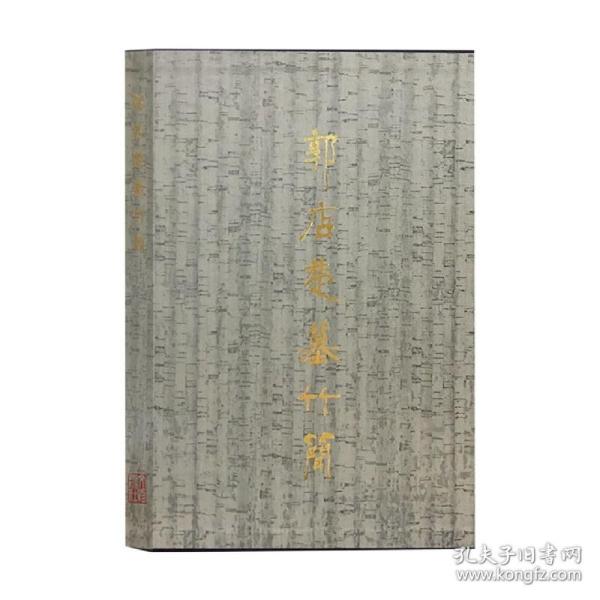 郭店楚墓竹简
郭店楚墓竹简
孔夫子旧书网
www.kongfz.com